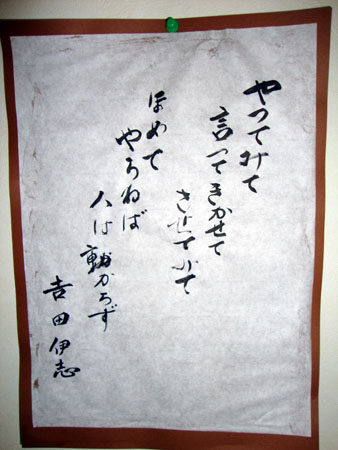 やつてみて
言つてきかせて
させてみて
ほめて
やらねば
人は動からず
吉田伊志